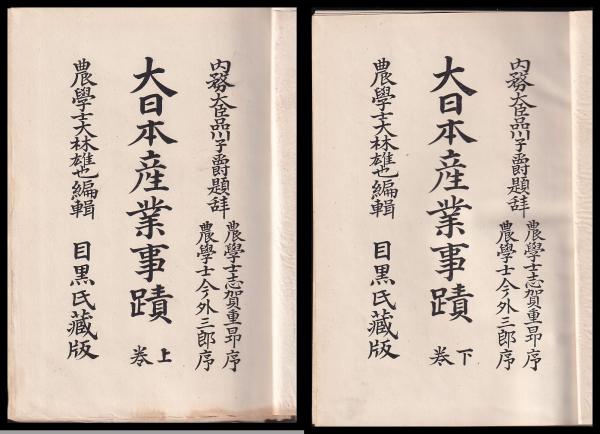 内務大臣品川子爵題辞
農學士志賀重昂序
農學士今外三郎序
大日本産業事蹟
上卷
農學士大林雄也編輯
目黒氏藏版
内務大臣品川子爵題辞
農學士志賀重昂序
農學士今外三郎序
大日本産業事蹟
下卷
農學士大林雄也編輯
目黒氏藏版